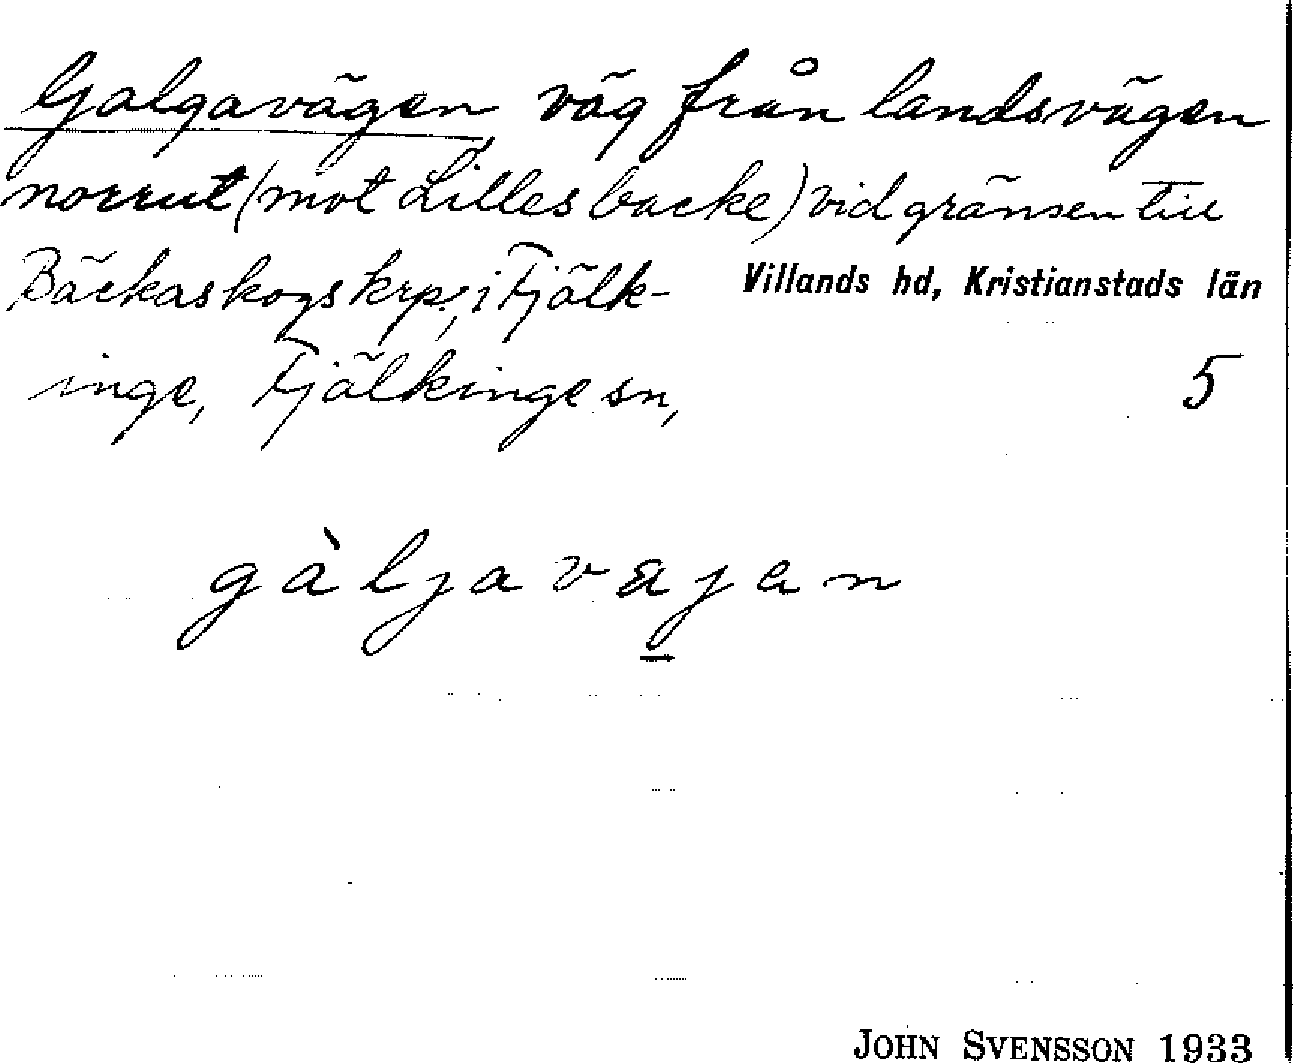 Galgavägen, väg från landsvägen
norrut (mot Lilles backe) vid gränsen till
Bäckaskogs krp., i Fjälk- Villands hd, Kristianstads län
inge, Fjälkinge sn, 5
gàljavajan
JOHN SVENSSON 1933